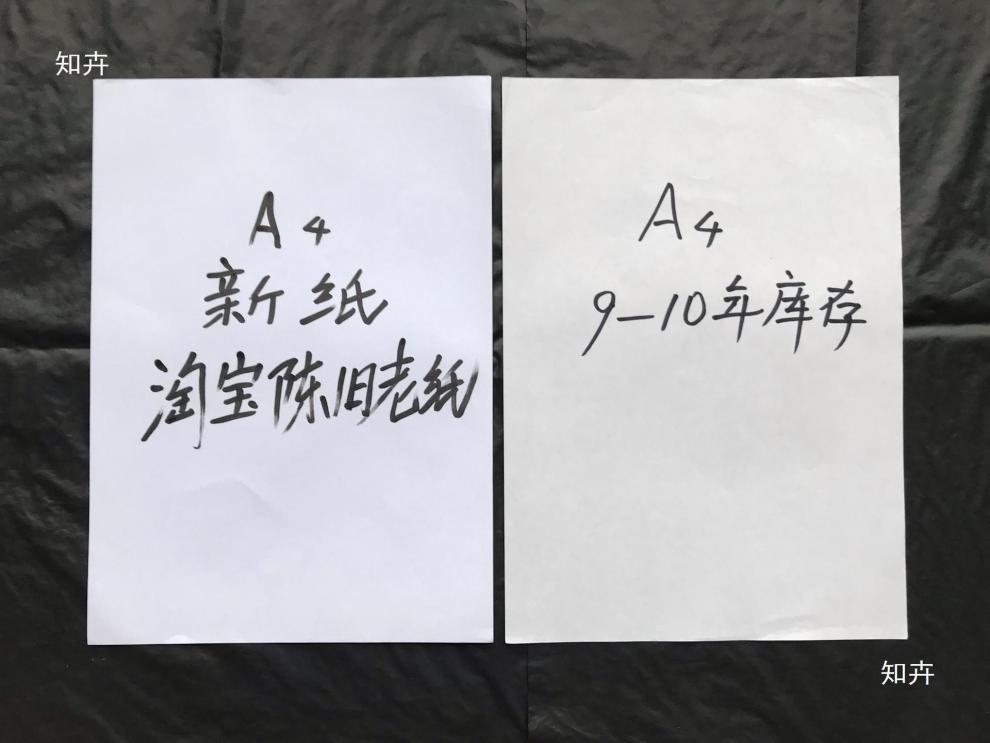 知卉
A4
新纸
淘宝陈旧老纸
A4
9-10年库存
知卉